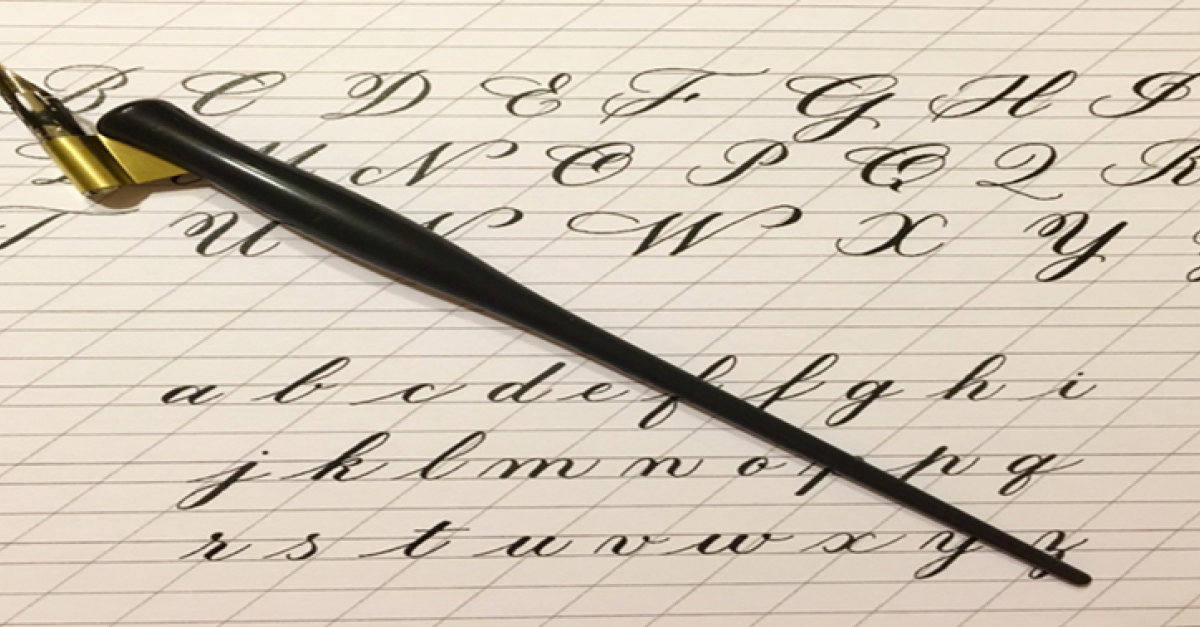 B C D E F G H I
M N O P Q Q R
T U V W X Y
a b c d e f f g h i
j k l m n o p p q
r s t u v w x y z